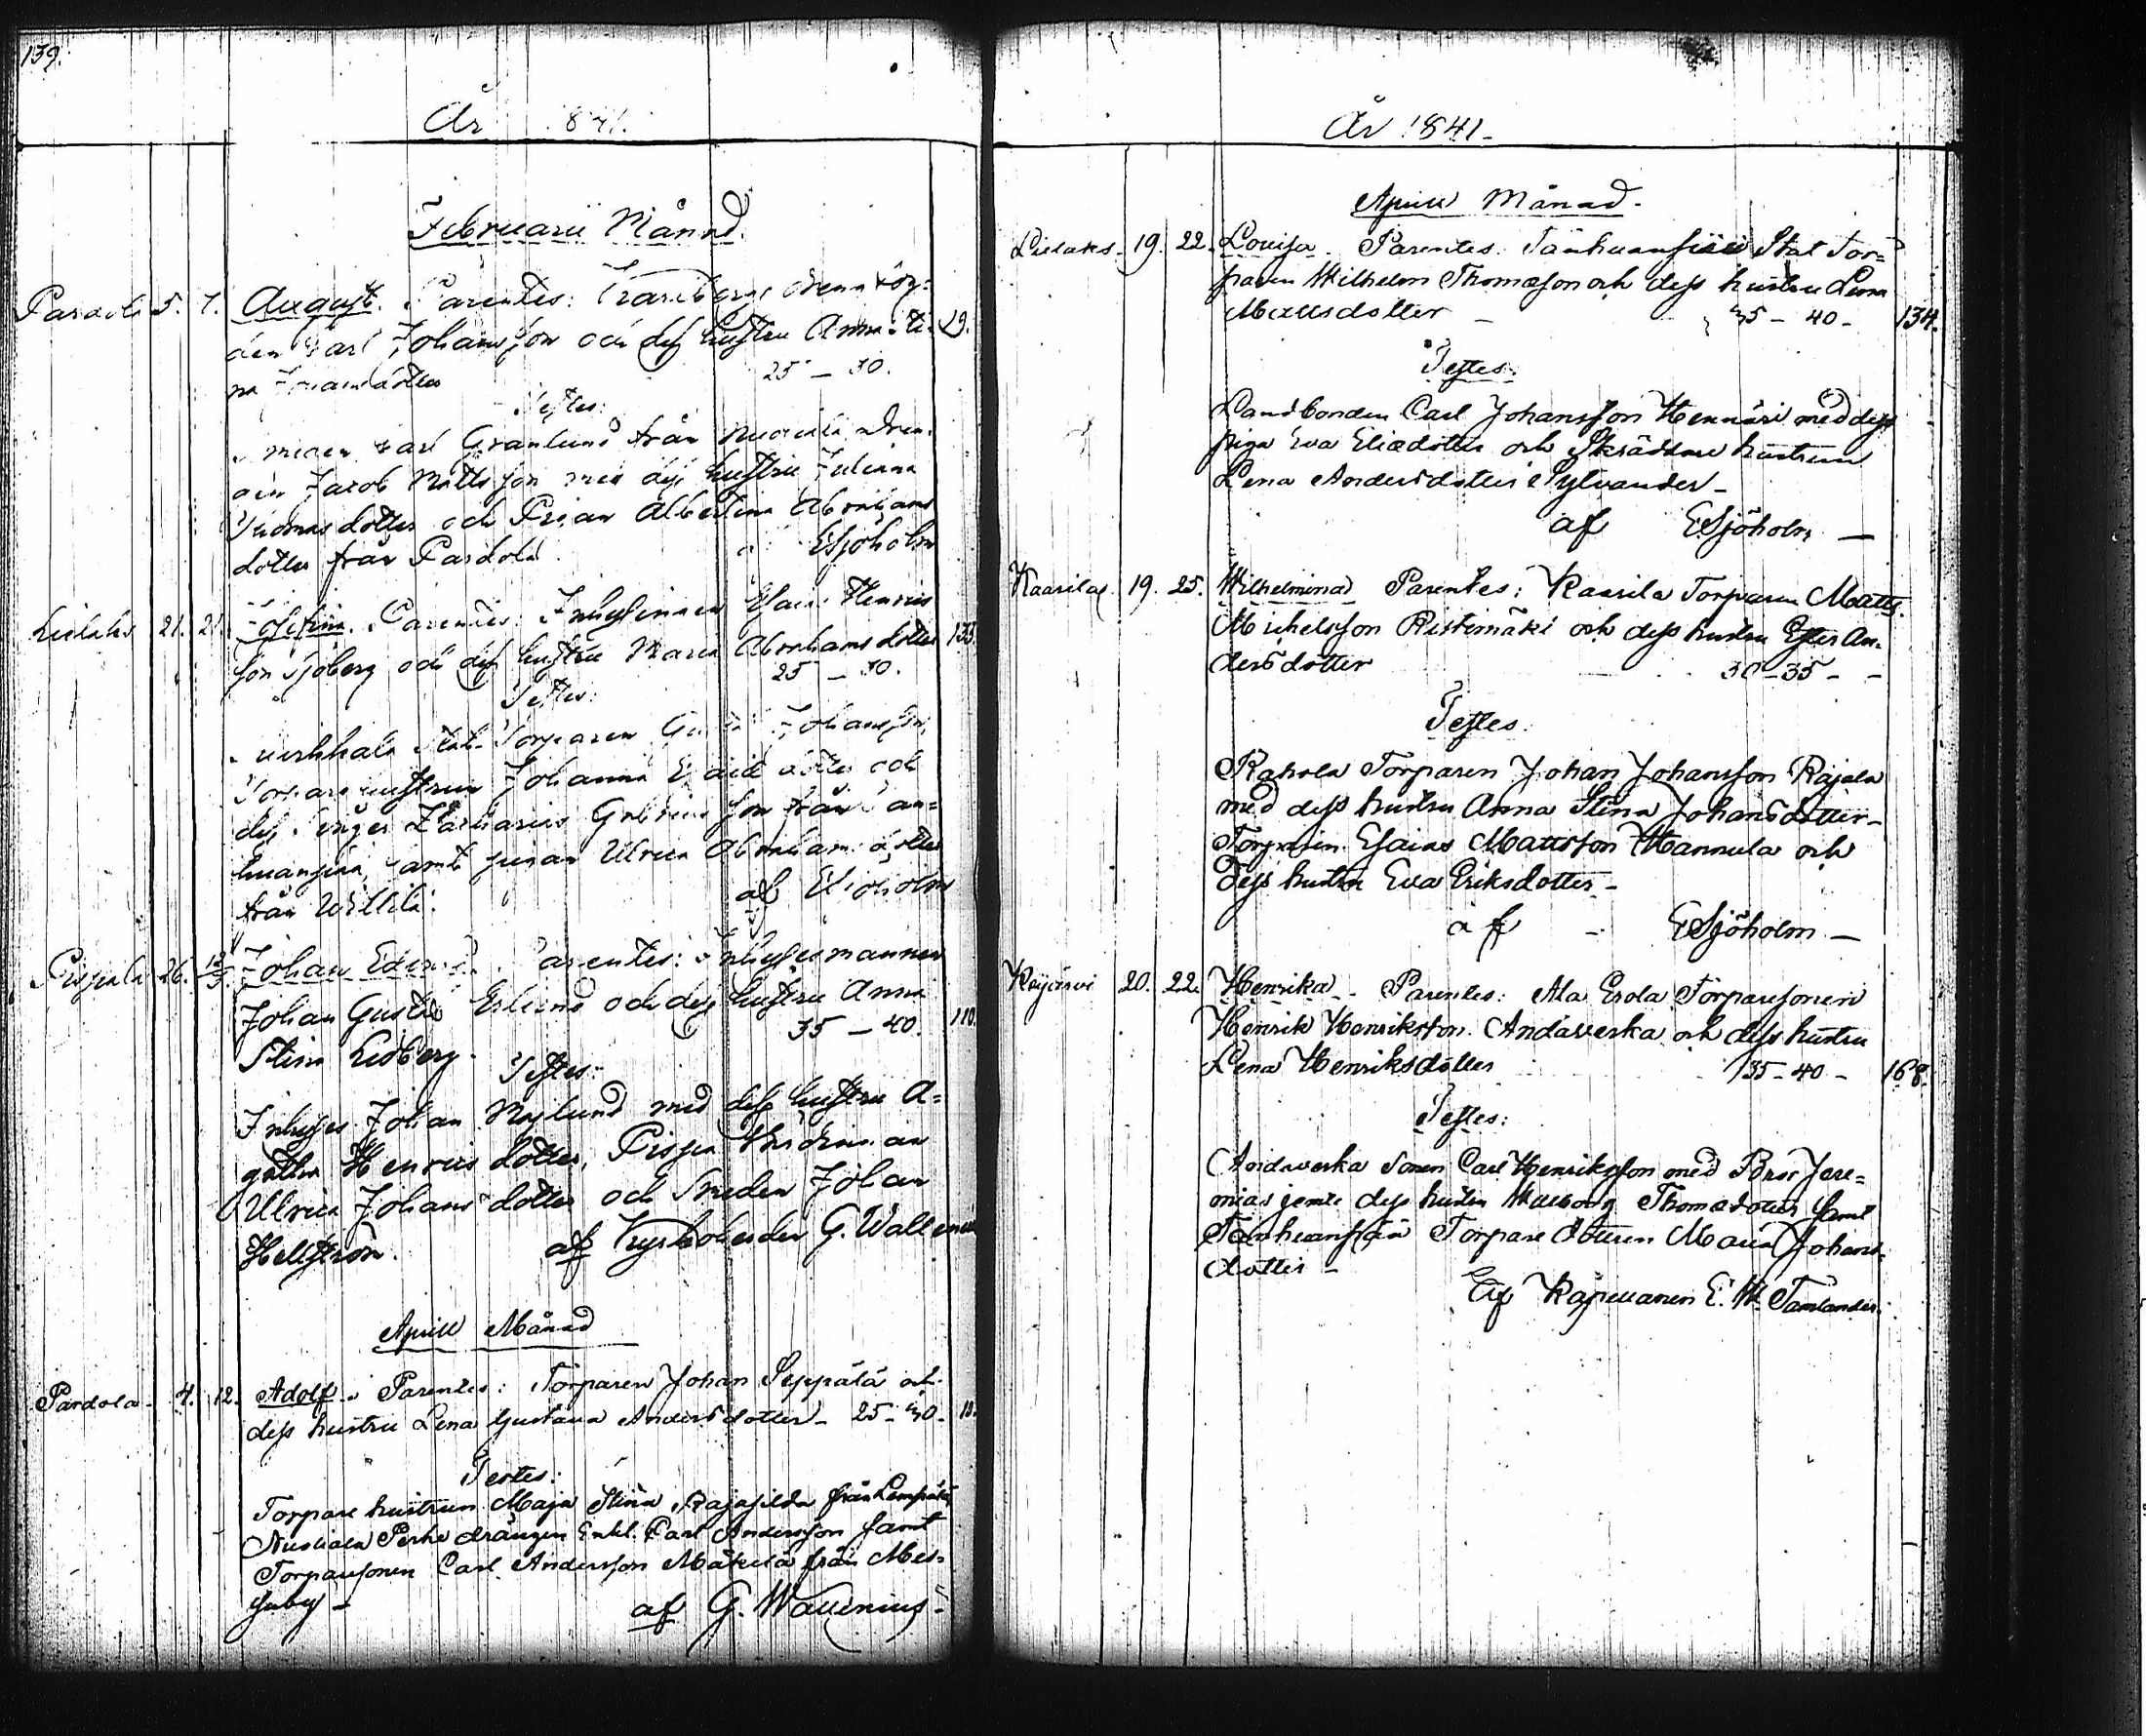 139.
År 1841.
Februarii Månad.
Pardola 5. 7. August. Parentes:
den Carl Johansson och dess hustru Anna Sti- 29.
na 25 – 30.
Testes:
Carl Granlund från
Jacob Mattsson med dess hustru Juliana
Thomasdotter och Pigan Albertina Abrahams
dotter från Pardola. ESjöholm
Lielaks 21. 21. Josefina. Parentes: Inhysingen Esaias Henrics
son Sjöberg och dess hustru Maria Abrahamsdotter 133
25 – 30.
Testes:
Torparen Johansson,
Torpare hustrun Johanna dotter och
dess Zacharias son från Tan-
huanpää, samt pigan Ulrica Abrahamsdotter
från Willilä. af ESjöholm
Pispala 26. 12/3. Johan Edvard. Parentes: Inhysesmannen
Johan Gustaf Erlund och dess hustru Anna 110.
Stina Lidberg. 35 – 40.
Testes:
Inhyses Johan Näslund med dess hustru A-
gatha Henricsdotter, Pispa
Ulrica Johansdotter och Smeden Johan
Hellström. af Kyrkoherden G. Wallenius
Aprill Månad
Pardola. 4. 12. Adolf. Parentes: Torparen Johan Seppälä och
dess hustru Lena Gustava Andersdotter – 25 – 30 –
Testes:
Torpare hustrun Maja Stina från Lempälä
drängen Enkl. Carl Andersson samt
Torparesonen Carl Andersson Mäkelä från Mes-
suby – af G. Wallenius –
År 1841 –
Aprill Månad.
Lielaks. 19. 22. Lovisa. Parentes: Tanhuanpää Stat Tor-
paren Wilhelm Thomasson och dess hustru Lena
Mattsdotter – 35 – 40 – 134.
Testes:
Landbonden Carl Johansson Hennäri med dess
piga Eva Eliædotter och Skräddare hustrun
Lena Andersdotter Sylvander –
af ESjöholm –
Kaarila 19. 25. Wilhelmina Parentes: Kaarila Torparen Matts
Michelsson Ristimäki och dess hustru Ester An-
dersdotter 30 – 35 – –
Testes:
Rahola Torparen Johan Johansson Rajala
med dess hustru Anna Stina Johansdotter –
Torparen Esaias Mattsson Hannula och
dess hustru Eva Eriksdotter –
af – ESjöholm –
Keijärvi 20. 22. Henrika – Parentes: Ala Erola Torparesonen
Henrik Henriksson Andaverka och dess hustru
Lena Henriksdotter 35 – 40 – 168.
Testes:
Andaverka Sonen Carl Henriksson med Bror Jere-
mias jemte dess hustru Walborg Thomædotter samt
Tanhuanpää Torpare dottren Maria Johans-
dotter –
af Kapellanen E. W. Tamlander.